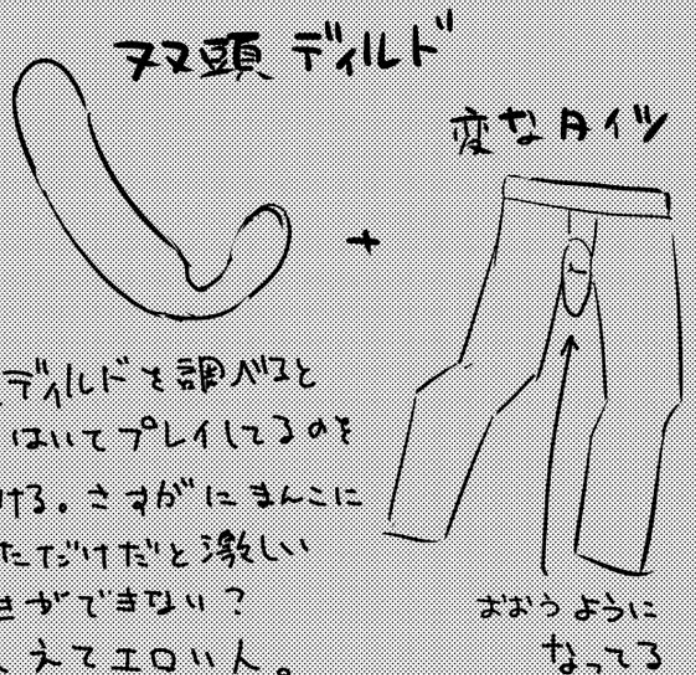 双頭ディルド
変なタイツ
+
ディルドを調べると
はいてプレイしてるのを
ける。さすがにまんこに
ただけだと激しい
きができない?
えてエロい人。
おおうように
なってる